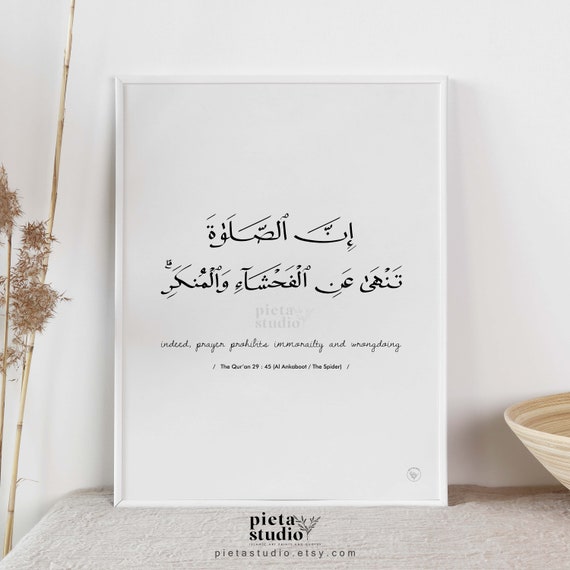 إِنَّ ٱلصَّلَوٰةَ
تَنْهَىٰ عَنِ ٱلْفَحْشَآءِ وَٱلْمُنكَرِ ۗ
pieta
studio
indeed, prayer prohibits immorailty and wrongdoing
/ The Qur'an 29 : 45 (Al Ankaboot / The Spider) /
pieta
studio
ISLAMIC ART PRINTS AND QUOTES
pietastudio.etsy.com